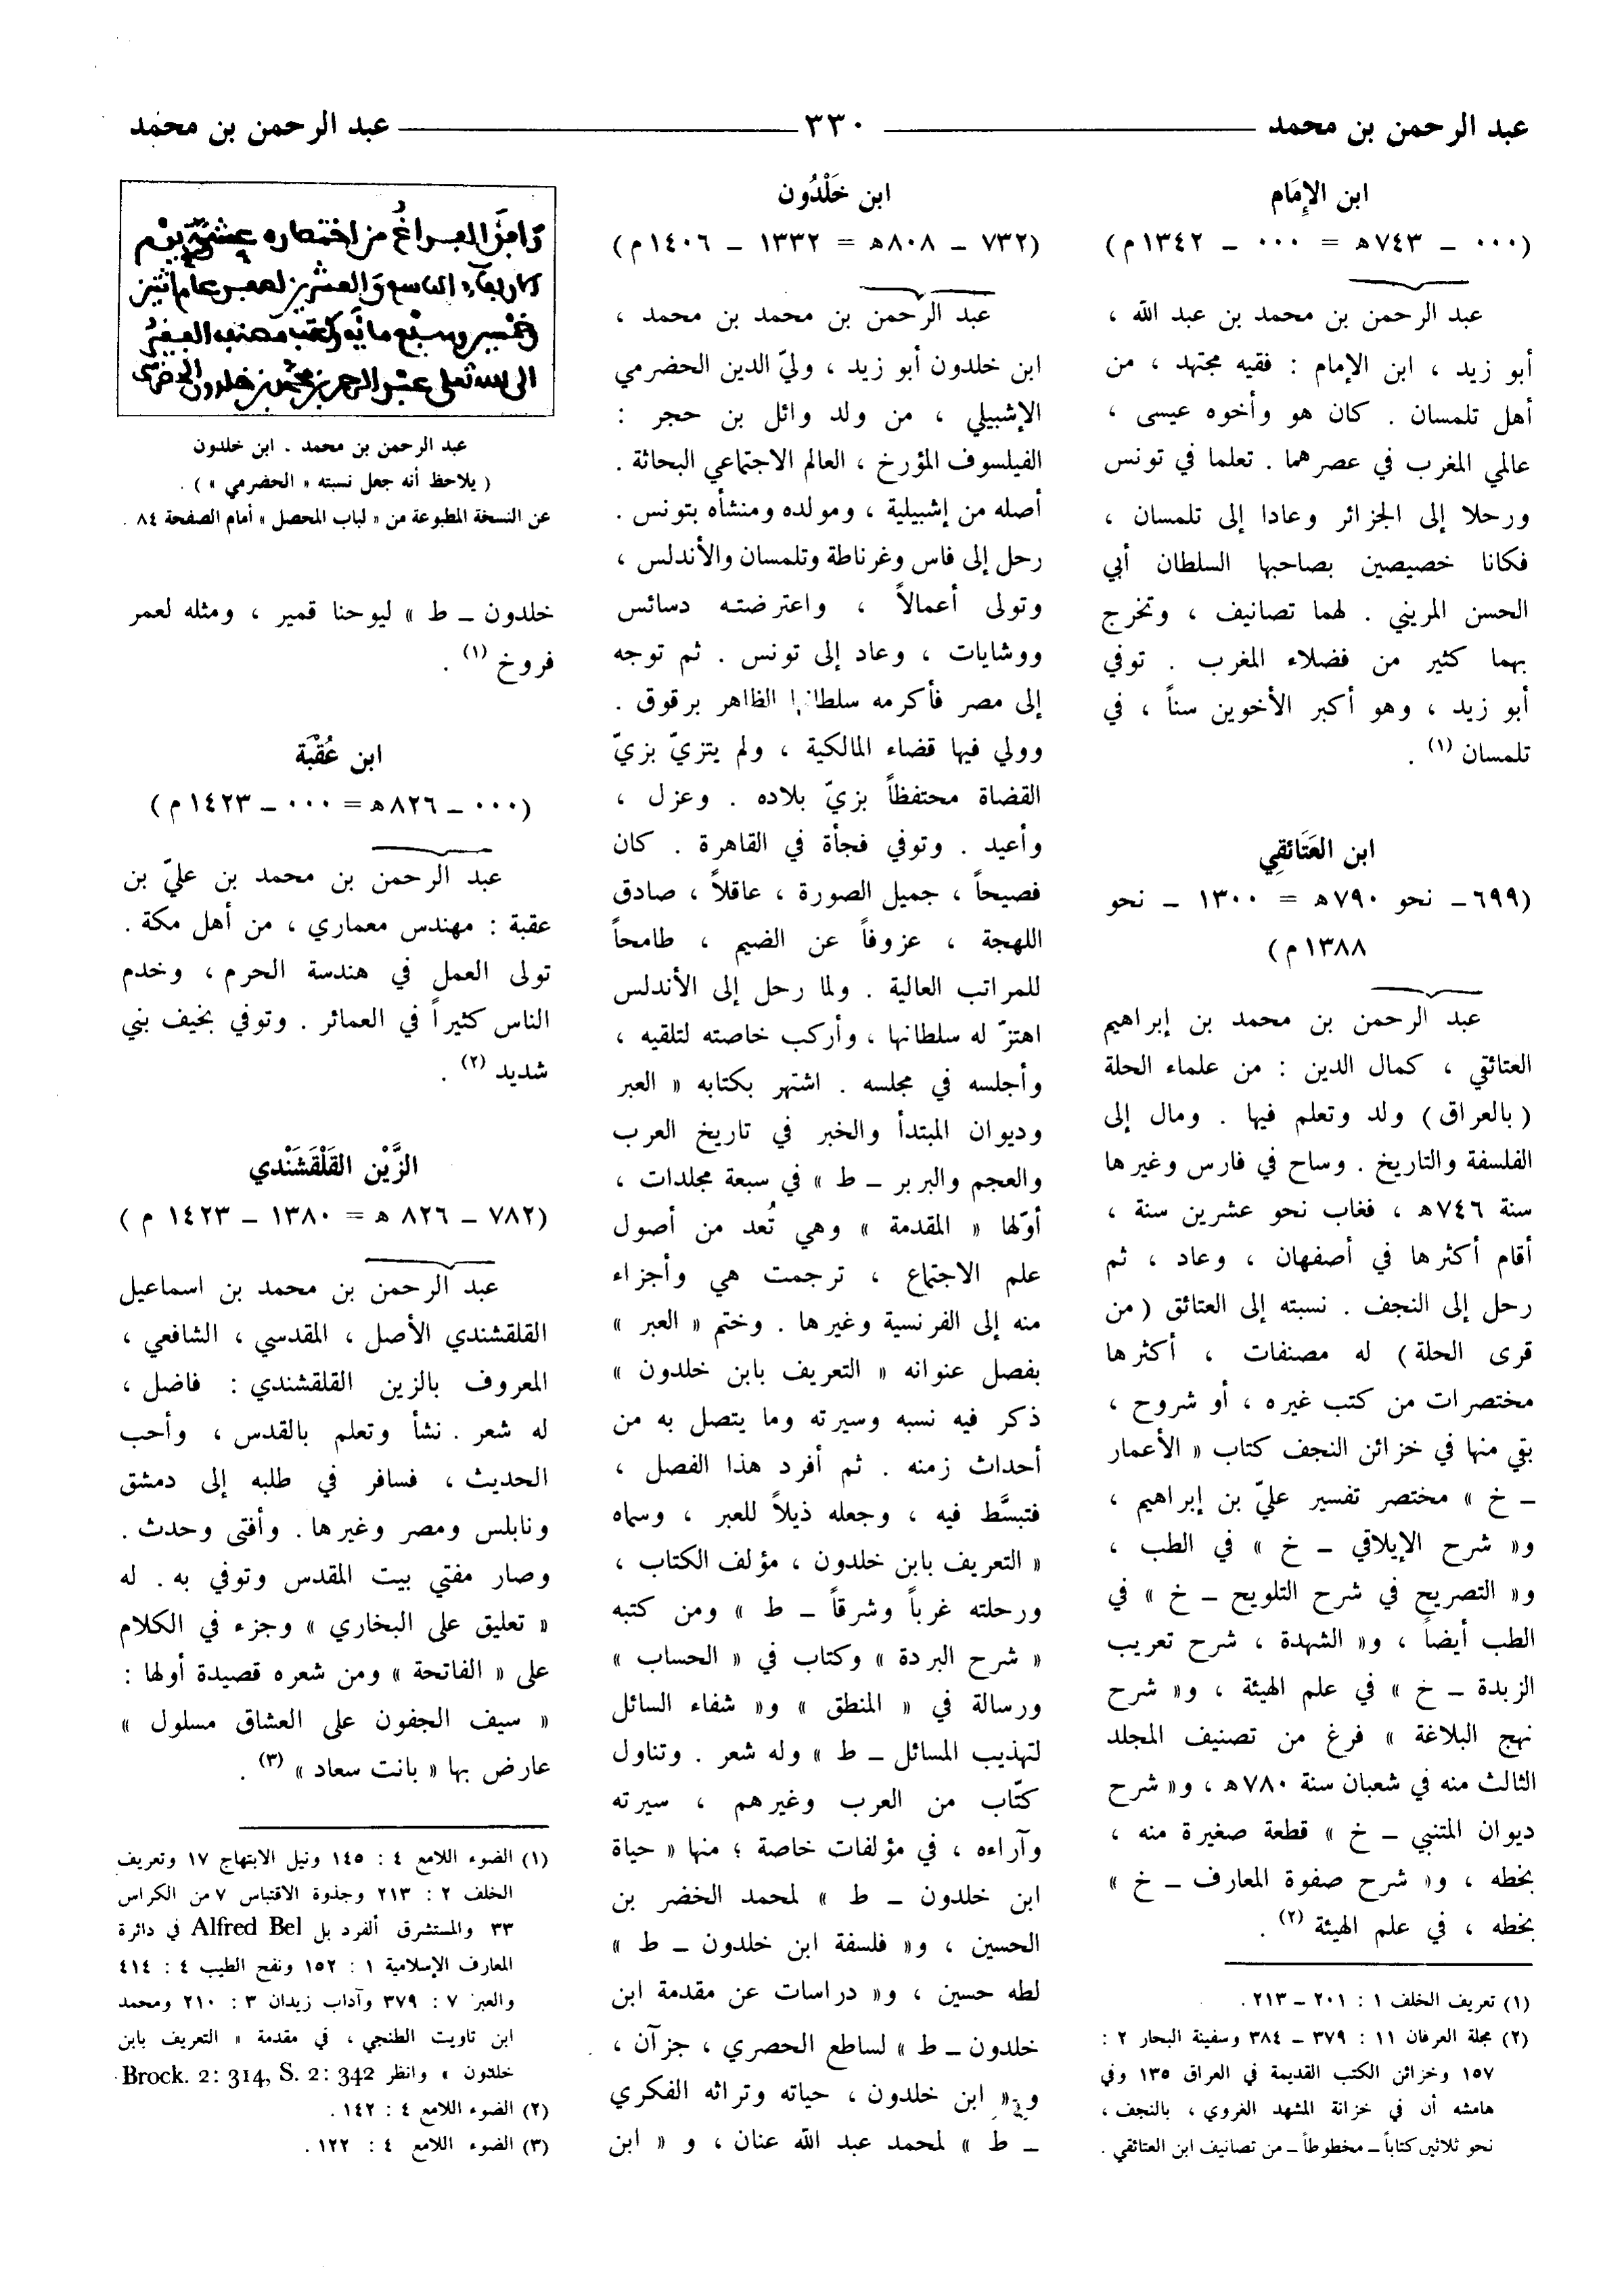 عبد الرحمن بن محمد ٣٣٠ عبد الرحمن بن محمد
ابن الإِمَام
(٠٠٠ ـ ٧٤٣هـ = ٠٠٠ ـ ١٣٤٢م)
عبد الرحمن بن محمد بن عبد الله ،
أبو زيد ، ابن الإمام : فقيه مجتهد ، من
أهل تلمسان . كان هو وأخوه عيسى ،
عالمي المغرب في عصرهما . تعلما في تونس
ورحلا إلى الجزائر وعادا إلى تلمسان ،
فكانا خصيصين بصاحبها السلطان أبي
الحسن المريني . لهما تصانيف ، وتخرج
بهما كثير من فضلاء المغرب . توفي
أبو زيد ، وهو أكبر الأخوين سناً ، في
تلمسان (١) .
ابن العَتَائقِي
(٦٩٩ ـ نحو ٧٩٠هـ = ١٣٠٠ ـ نحو
١٣٨٨م)
عبد الرحمن بن محمد بن إبراهيم
العتائقي ، كمال الدين : من علماء الحلة
(بالعراق) ولد وتعلم فيها . ومال إلى
الفلسفة والتاريخ . وساح في فارس وغيرها
سنة ٧٤٦هـ ، فغاب نحو عشرين سنة ،
أقام أكثرها في أصفهان ، وعاد ، ثم
رحل إلى النجف . نسبته إلى العتائق (من
قرى الحلة) له مصنفات ، أكثرها
مختصرات من كتب غيره ، أو شروح ،
بقي منها في خزائن النجف كتاب « الأعمار
ـ خ » مختصر تفسير عليّ بن إبراهيم ،
و« شرح الإيلاقي ـ خ » في الطب ،
و« التصريح في شرح التلويح ـ خ » في
الطب أيضاً ، و« الشهدة ، شرح تعريب
الزبدة ـ خ » في علم الهيئة ، و« شرح
نهج البلاغة » فرغ من تصنيف المجلد
الثالث منه في شعبان سنة ٧٨٠هـ ، و« شرح
ديوان المتنبي ـ خ » قطعة صغيرة منه ،
بخطه ، و« شرح صفوة المعارف ـ خ »
بخطه ، في علم الهيئة (٢) .
(١) تعريف الخلف ١ : ٢٠١ ـ ٢١٣ .
(٢) مجلة العرفان ١١ : ٣٧٩ ـ ٣٨٤ وسفينة البحار ٢ :
١٥٧ وخزائن الكتب القديمة في العراق ١٣٥ وفي
هامشه أن في خزانة المشهد الغروي ، بالنجف ،
نحو ثلاثين كتاباً ـ مخطوطاً ـ من تصانيف ابن العتائقي .
ابن خَلْدُون
(٧٣٢ ـ ٨٠٨هـ = ١٣٣٢ ـ ١٤٠٦م)
عبد الرحمن بن محمد بن محمد ،
ابن خلدون أبو زيد ، وليّ الدين الحضرمي
الإشبيلي ، من ولد وائل بن حجر :
الفيلسوف المؤرخ ، العالم الاجتماعي البحاثة .
أصله من إشبيلية ، ومولده ومنشأه بتونس .
رحل إلى فاس وغرناطة وتلمسان والأندلس ،
وتولى أعمالاً ، واعترضته دسائس
ووشايات ، وعاد إلى تونس . ثم توجه
إلى مصر فأكرمه سلطانها الظاهر برقوق .
وولي فيها قضاء المالكية ، ولم يتزيّ بزيّ
القضاة محتفظاً بزيّ بلاده . وعزل ،
وأعيد . وتوفي فجأة في القاهرة . كان
فصيحاً ، جميل الصورة ، عاقلاً ، صادق
اللهجة ، عزوفاً عن الضيم ، طامحاً
للمراتب العالية . ولما رحل إلى الأندلس
اهتزّ له سلطانها ، وأركب خاصته لتلقيه ،
وأجلسه في مجلسه . اشتهر بكتابه « العبر
وديوان المبتدأ والخبر في تاريخ العرب
والعجم والبربر ـ ط » في سبعة مجلدات ،
أوّلها « المقدمة » وهي تُعد من أصول
علم الاجتماع ، ترجمت هي وأجزاء
منه إلى الفرنسية وغيرها . وختم « العبر »
بفصل عنوانه « التعريف بابن خلدون »
ذكر فيه نسبه وسيرته وما يتصل به من
أحداث زمنه . ثم أفرد هذا الفصل ،
فتبسَّط فيه ، وجعله ذيلاً للعبر ، وسماه
« التعريف بابن خلدون ، مؤلف الكتاب ،
ورحلته غرباً وشرقاً ـ ط » ومن كتبه
« شرح البردة » وكتاب في « الحساب »
ورسالة في « المنطق » و« شفاء السائل
لتهذيب المسائل ـ ط » وله شعر . وتناول
كتّاب من العرب وغيرهم ، سيرته
وآراءه ، في مؤلفات خاصة ؛ منها « حياة
ابن خلدون ـ ط » لمحمد الخضر بن
الحسين ، و« فلسفة ابن خلدون ـ ط »
لطه حسين ، و« دراسات عن مقدمة ابن
خلدون ـ ط » لساطع الحصري ، جزآن ،
و« ابن خلدون ، حياته وتراثه الفكري
ـ ط » لمحمد عبد الله عنان ، و « ابن
عبد الرحمن بن محمد . ابن خلدون
( يلاحظ أنه جعل نسبته « الحضرمي » ) .
عن النسخة المطبوعة من « لباب المحصل » أمام الصفحة ٨٤ .
خلدون ـ ط » ليوحنا قمير ، ومثله لعمر
فروخ (١) .
ابن عُقْبَة
(٠٠٠ ـ ٨٢٦هـ = ٠٠٠ ـ ١٤٢٣م)
عبد الرحمن بن محمد بن عليّ بن
عقبة : مهندس معماري ، من أهل مكة .
تولى العمل في هندسة الحرم ، وخدم
الناس كثيراً في العمائر . وتوفي بخيف بني
شديد (٢) .
الزَّيْن القَلْقَشَنْدي
(٧٨٢ ـ ٨٢٦ هـ = ١٣٨٠ ـ ١٤٢٣ م)
عبد الرحمن بن محمد بن اسماعيل
القلقشندي الأصل ، المقدسي ، الشافعي ،
المعروف بالزين القلقشندي : فاضل ،
له شعر . نشأ وتعلم بالقدس ، وأحب
الحديث ، فسافر في طلبه إلى دمشق
ونابلس ومصر وغيرها . وأفتى وحدث .
وصار مفتي بيت المقدس وتوفي به . له
« تعليق على البخاري » وجزء في الكلام
على « الفاتحة » ومن شعره قصيدة أولها :
« سيف الجفون على العشاق مسلول »
عارض بها « بانت سعاد » (٣) .
(١) الضوء اللامع ٤ : ١٤٥ ونيل الابتهاج ١٧ وتعريف
الخلف ٢ : ٢١٣ وجذوة الاقتباس ٧ من الكراس
٣٣ والمستشرق ألفرد بل Alfred Bel في دائرة
المعارف الإسلامية ١ : ١٥٢ ونفح الطيب ٤ : ٤١٤
والعبر ٧ : ٣٧٩ وآداب زيدان ٣ : ٢١٠ ومحمد
ابن تاويت الطنجي ، في مقدمة « التعريف بابن
خلدون » وانظر Brock. 2: 314, S. 2: 342.
(٢) الضوء اللامع ٤ : ١٤٢ .
(٣) الضوء اللامع ٤ : ١٢٢ .